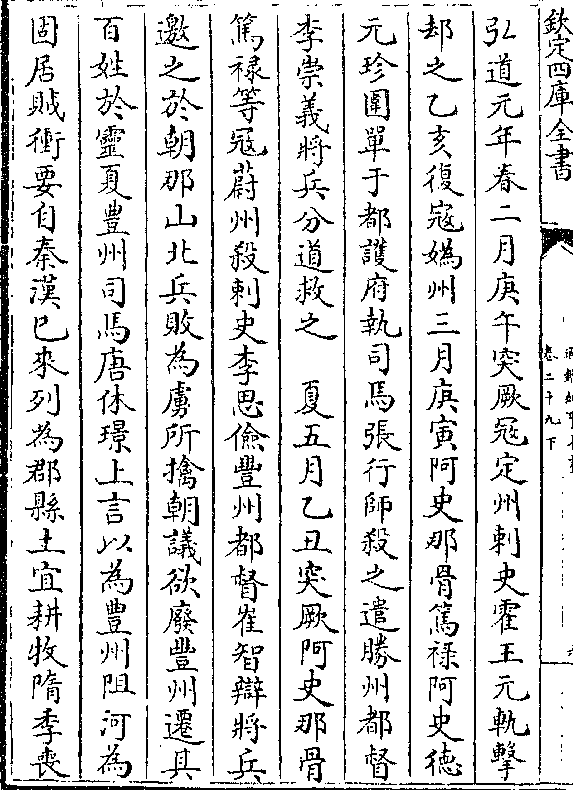 欽定四庫全書
卷二十九下
弘道元年春二月庚午突厥冦定州刺史霍王元軌擊
却之乙亥復冦媯州三月庚寅阿史那骨篤禄阿史徳
元珍圍單于都護府執司馬張行師殺之遣勝州都督
李崇義將兵分道救之　夏五月乙丑突厥阿史那骨
篤禄等冦蔚州殺刺史李思儉豐州都督崔智辯將兵
邀之於朝那山北兵敗為虜所擒朝議欲廢豐州遷其
百姓於靈夏豊州司馬唐休璟上言以為豊州阻河為
固居賊衝要自秦漢已來列為郡縣土宜耕牧隋季喪